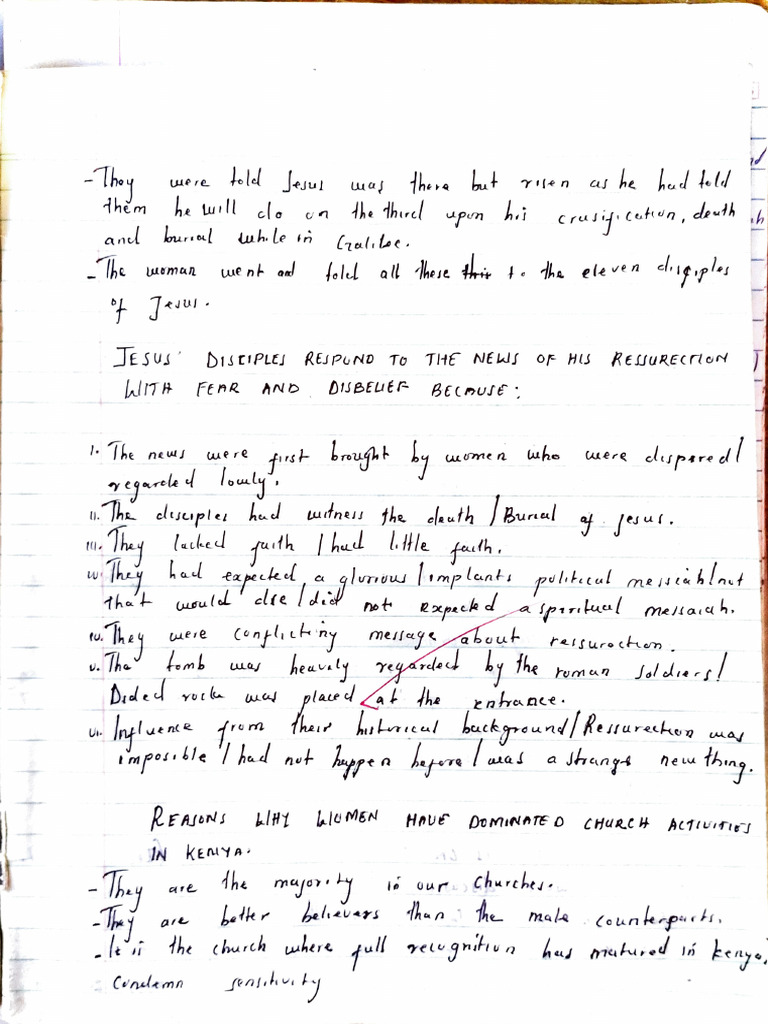 - They were told Jesus was there but risen as he had told
them he will do on the third upon his crusification, death
and burial while in Galilee.
- The woman went and told all these to the eleven disciples
of Jesus.
JESUS' DISCIPLES RESPOND TO THE NEWS OF HIS RESSURECTION
WITH FEAR AND DISBELIEF BECAUSE:
I. The news were first brought by women who were dispared/
regarded lowly.
II. The disciples had witness the death / Burial of Jesus.
III. They lacked faith / had little faith.
IV. They had expected a glorious / implants political messiah/not
that would / did not expected a spiritual messaiah.
IV. They were conflicting message about ressuroction.
V. The tomb was heavily regarded by the roman soldiers/
rock was placed at the entrance.
VI. Influence from their historical background/Ressurection was
imposible / had not happen before / was a strange new thing.
REASONS WHY WOMEN HAVE DOMINATED CHURCH ACTIVITIES
IN KENYA.
- They are the majority in our churches.
- They are better believers than the male counterparts.
- It is the church where full recognition has matured in Kenya,
Condemn sensitivity